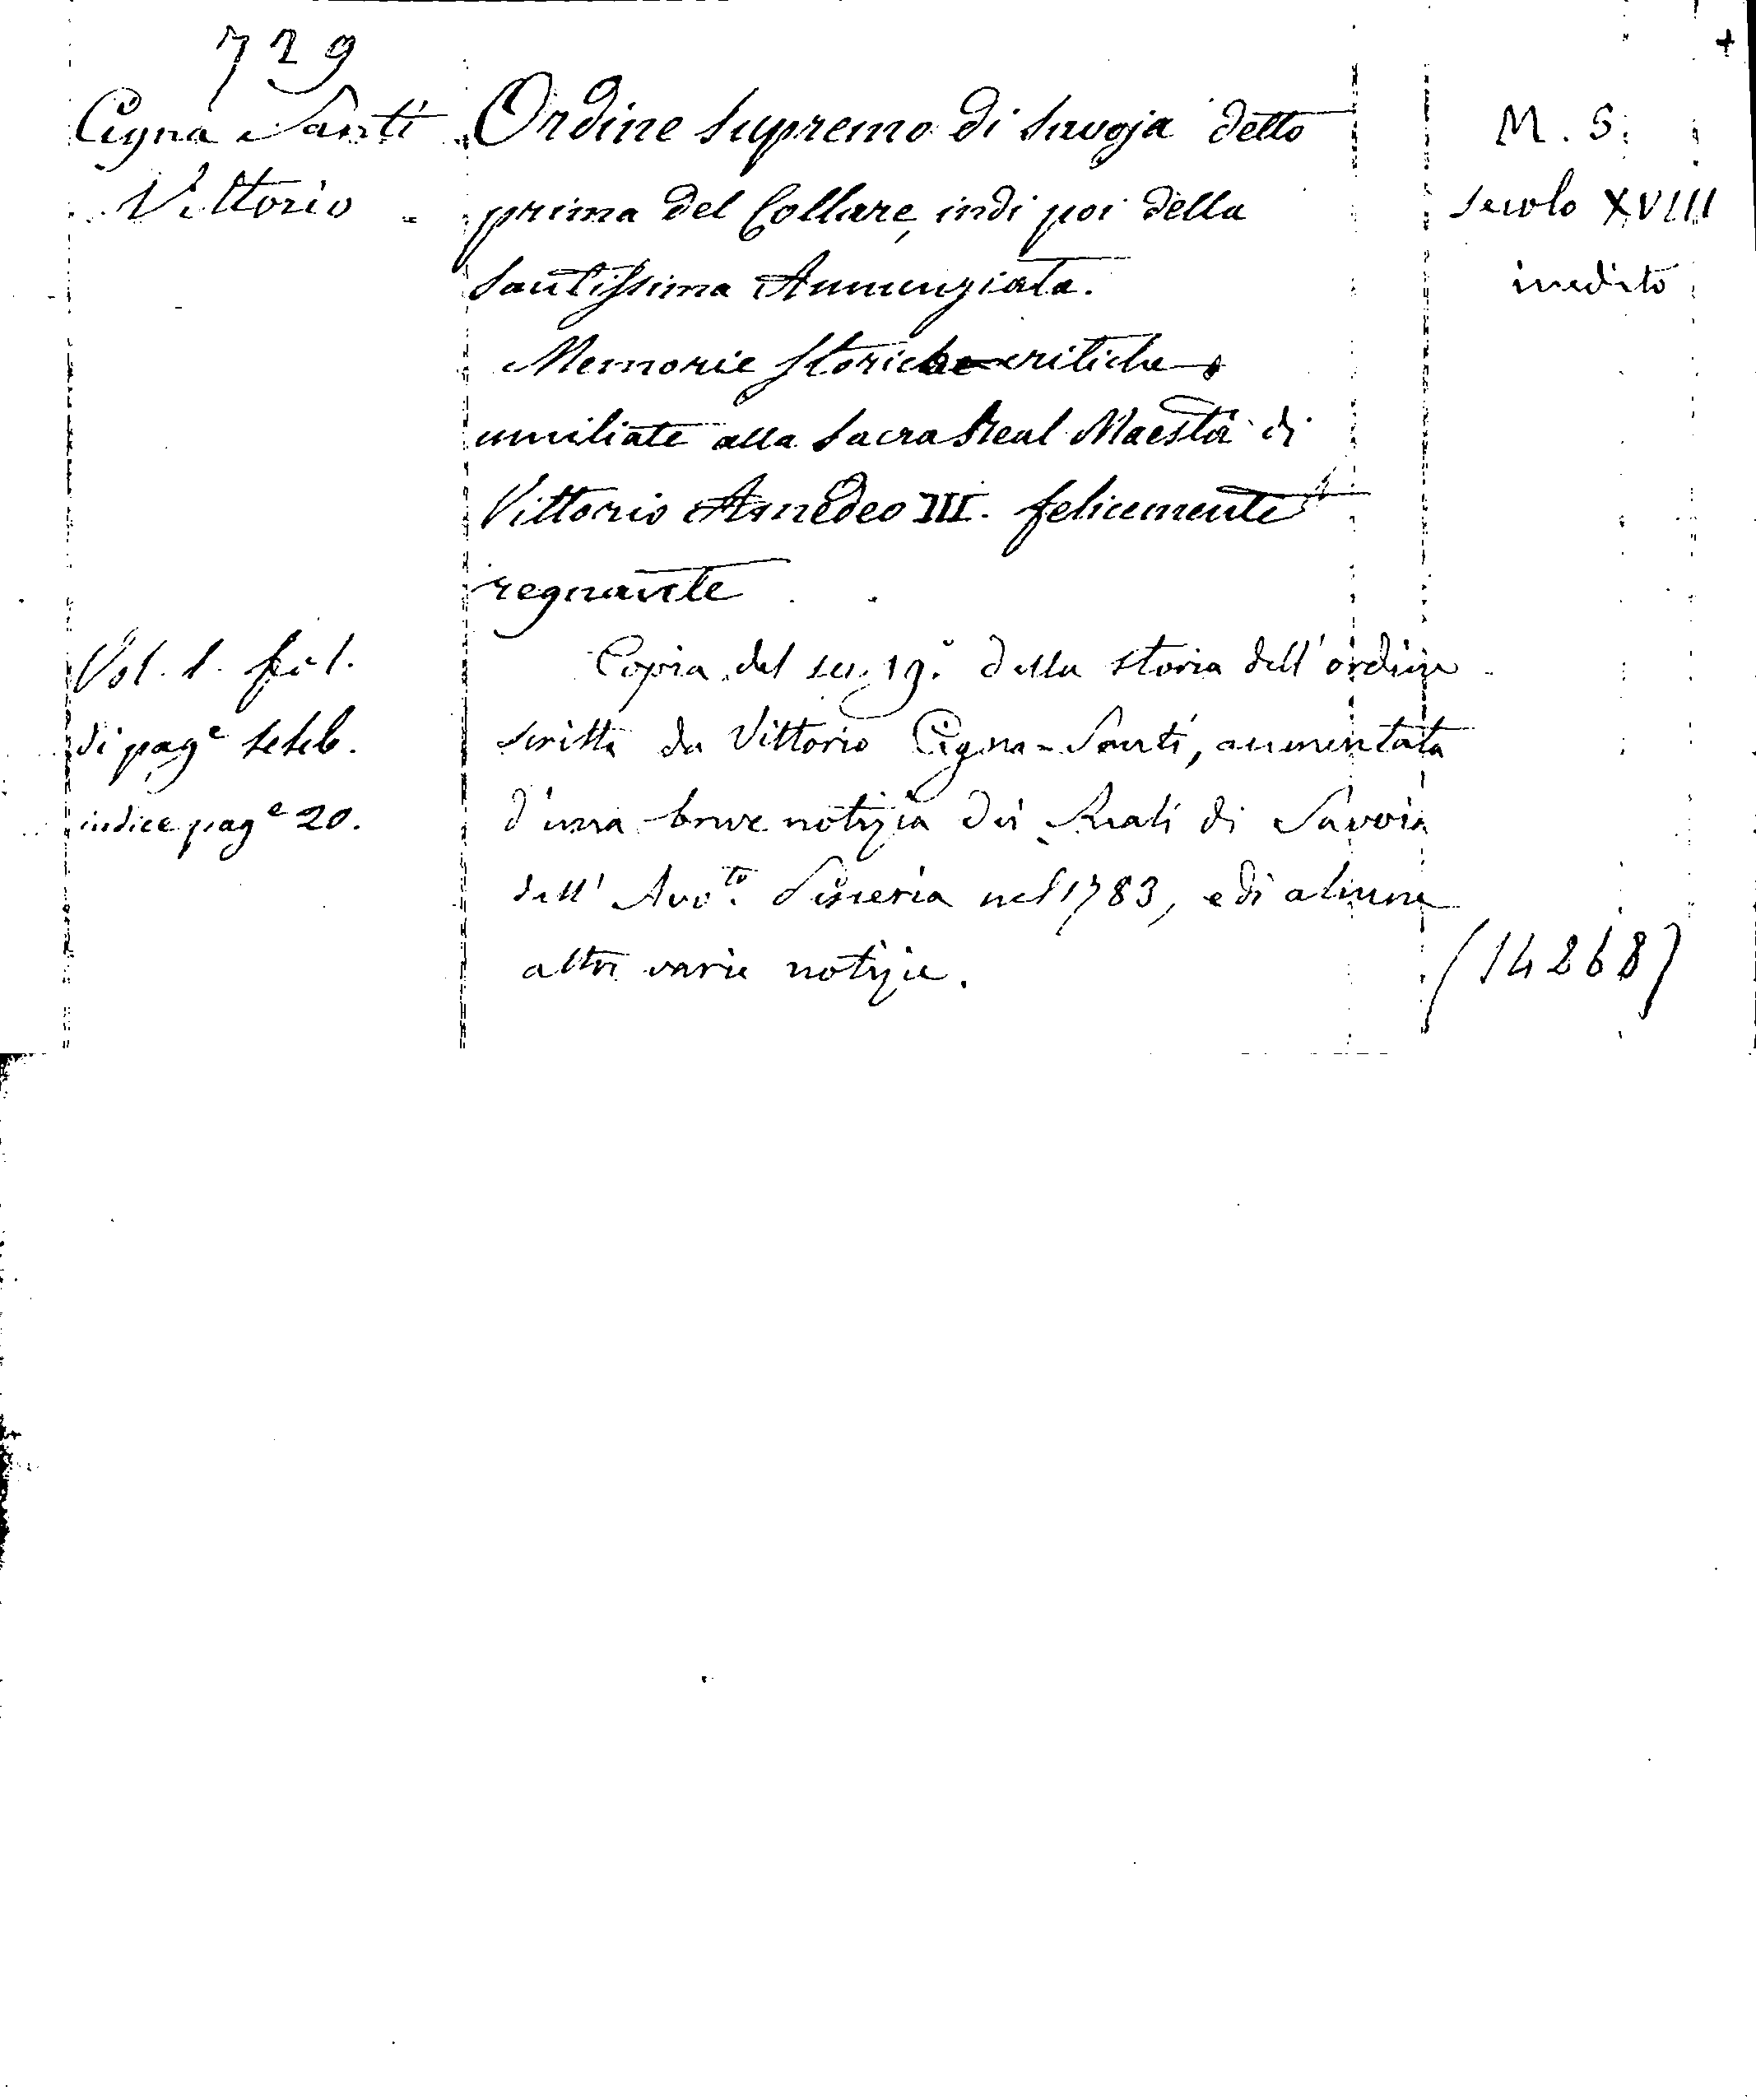 729
+
Cigna Santi
Vittorio
Ordine supremo di Savoja detto
prima del Collare, indi poi della
Santissima Annunziata.
Memorie storiche critiche
umiliate alla Sacra Real Maestà di
Vittorio Amedeo III. felicemente
regnante
M. S.
secolo XVIII
inedito
Vol. 1. fol.
di pagᵉ
indice pagᵉ 20.
Copia del sec. 19.° della storia dell'ordine
scritta da Vittorio Cigna-Santi, aumentata
d'una breve notizia dei Reali di Savoia
dell' Avv.to nel 1783, e di alcune
altre varie notizie.
(14268)